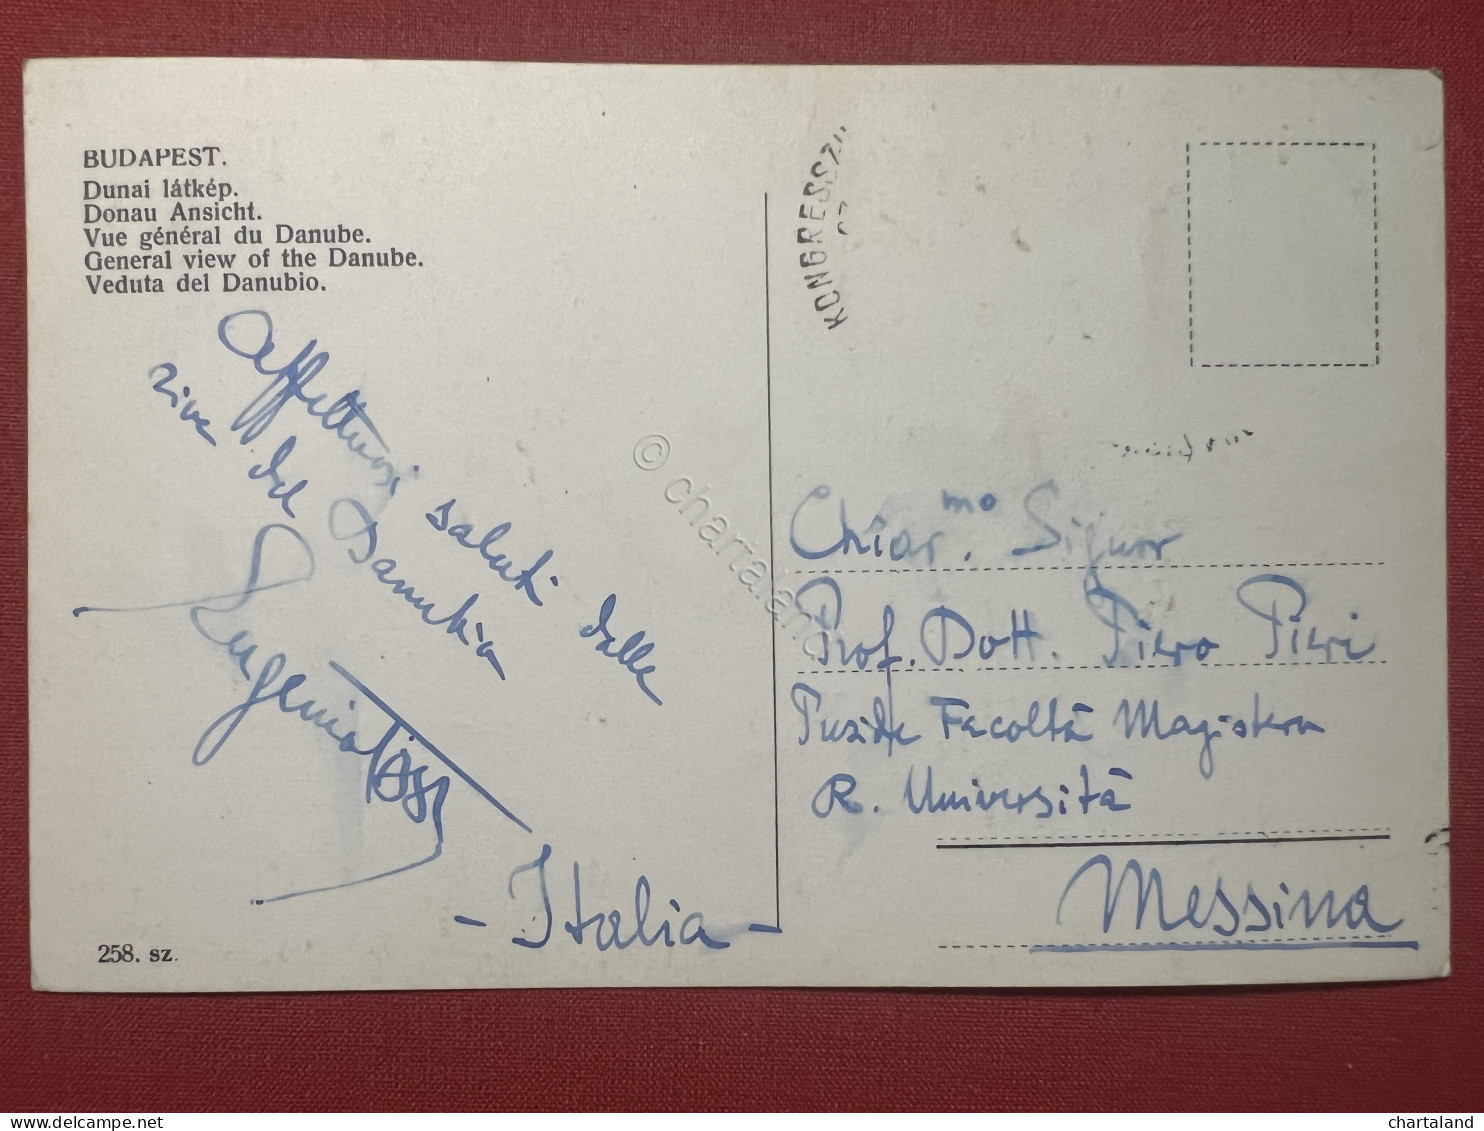 BUDAPEST.
Dunai látkép.
Donau Ansicht.
Vue général du Danube.
General view of the Danube.
Veduta del Danubio.
Affettuosi saluti dalle
rive del Danubio
Eugenio
258. sz.
KONGRESSZU
Chiar.mo Signor
Prof. Dott. Piero Pieri
Facoltà Magistero
R. Università
Messina
- Italia -
© chartaland
chartaland
delcampe.net